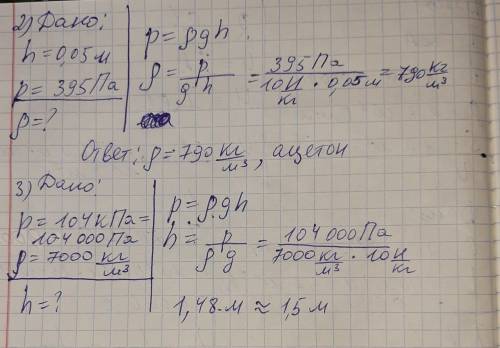 2) Дано:
h = 0,05 м
p = 395 Па
ρ = ?
p = ρgh
ρ = p / g·h = 395 Па / 10 Н/кг · 0,05 м = 790 кг/м³
Ответ: ρ = 790 кг/м³, ацетон
3) Дано:
p = 104 кПа =
104 000 Па
ρ = 7000 кг/м³
h = ?
p = ρ.gh
h = p / ρ·g = 104 000 Па / 7000 кг/м³ · 10 Н/кг
1,48 м ≈ 1,5 м